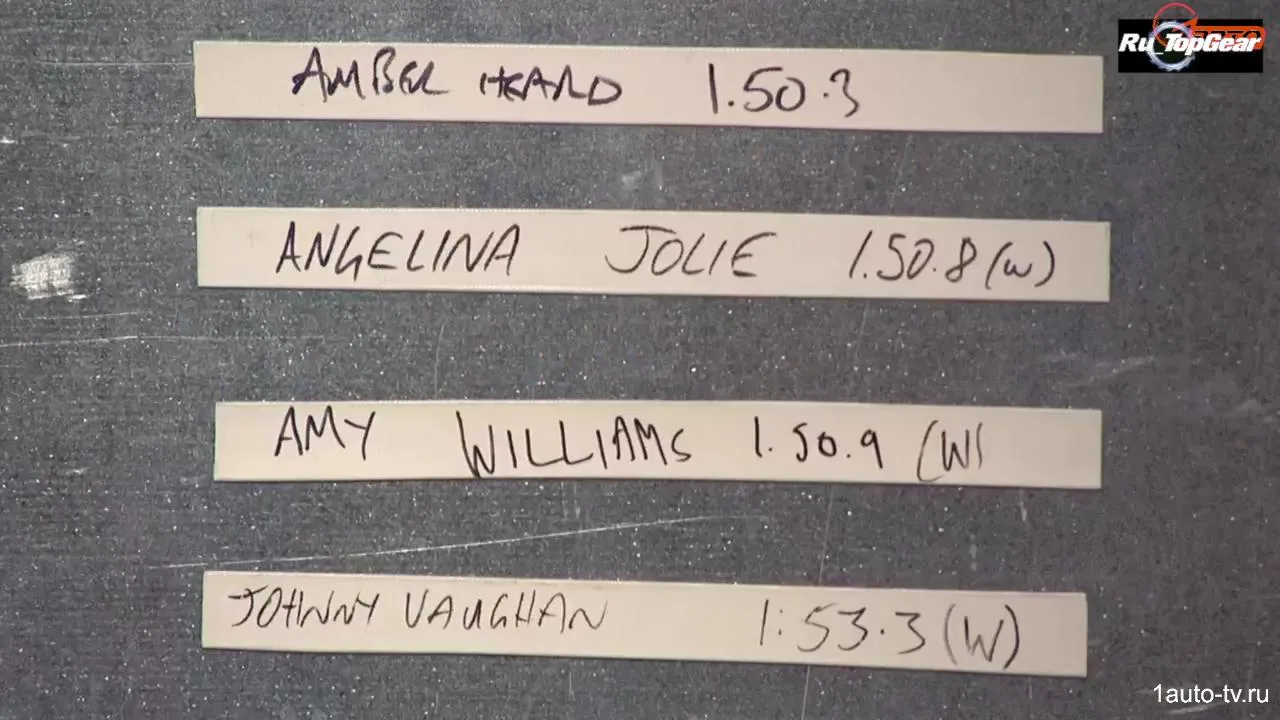 Ru_TopGear
AMBER HEARD 1.50.3
ANGELINA JOLIE 1.50.8 (W)
AMY WILLIAMS 1.50.9 (W)
JOHNNY VAUGHAN 1:53.3 (W)
1auto-tv.ru